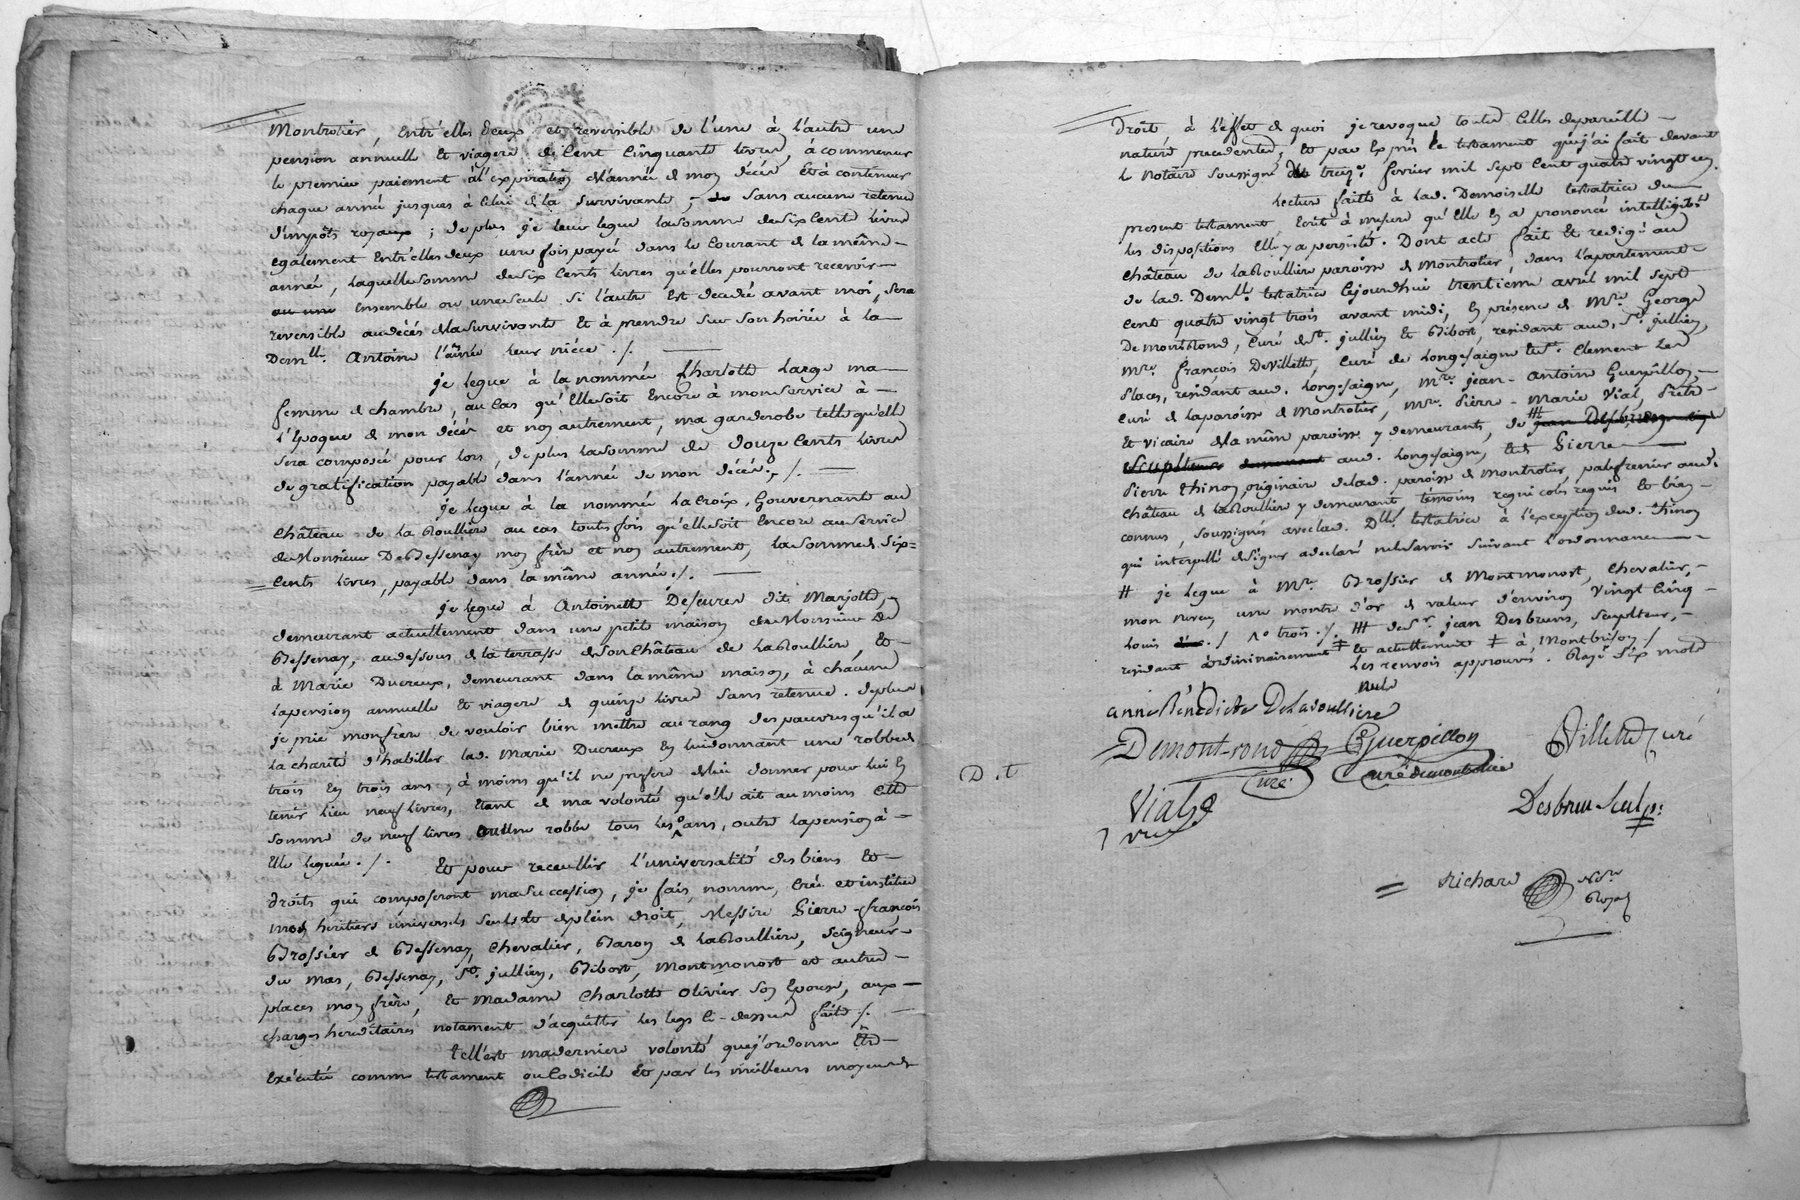 Montrotier, Entr'elles deux et reversible de l'une à l'autre une
pension annuelle Et viagere de Cent Cinquante livres, à commencer
le premier paiement à l'expiration de l'année de mon décés Et à continuer
chaque année jusques à Celui de la Survivante, Sans aucune retenue
d'impôts royaux; de plus je leur legue la somme de six Cent livres
egalement Entr'elles deux une fois payée dans le Courant de la même
année, laquelle somme de six Cents livres qu'elles pourront recevoir
ensemble ou une seule si l'autre Est decedée avant moi, sera
reversible au decés de la Survivante Et à prendre sur son hoirie à la
Demlle. Antoine l'ainée leur niéce ./.
je legue à la nommée Charlotte Large ma
femme de chambre, au Cas qu'Elle soit Encore à mon service à
l'Epoque de mon décés et non autrement, ma garderobe telle qu'elle
sera composée pour lors, de plus la somme de douze Cents livres
de gratification payable dans l'année de mon décés ./.
je legue à la nommée Lacroix, Gouvernante au
Château de la Roullière au cas toutefois qu'elle soit Encore au service
de Monsieur De Bessenay mon frère et non autrement, la somme de six=
Cents livres, payable dans la même année ./.
je legue à Antoinette Deseures dit Marjotte,
demeurant actuellement dans une petite maison de Monsieur De
Bessenay, au dessous de la terrasse de son Château de la Roullière, Et
à Marie Ducreux, demeurant dans la même maison, à chacune
la pension annuelle Et viagere de quinze livres sans retenue. de plus
je prie mon frere de vouloir bien mettre au rang des pauvres qu'il a
la charité d'habiller lad. Marie Ducreux En lui donnant une robbe de
trois En trois ans, à moins qu'il ne prefere de lui donner pour lui En
tenir lieu neuf livres, Etant de ma volonté qu'elle ait au moins Cette
somme de neuf livres ou une robbe tous les 3 ans, outre la pension à
Elle leguée ./. Et pour receullir l'universalité des biens Et
droits qui composeront ma succession, je fais, nomme, Crée et institue
mes heritiers universels seuls Et de plein droit, Messire Pierre-françois
Brossier de Bessenay, Chevalier, Baron de la Roullière, Seigneur
du Mas, Bessenay, St. jullien, Bibost, Montmonost et autres
places mon frère, Et Madame Charlotte Olivier son Epouse, aux
charges hereditaires notament d'acquitter les legs Ci-dessus faits ./.
telle est ma derniere volonté que j'ordonne Etre
Exécutée comme testament ou Codicile Et par les meilleurs moyens de
droit, à l'effet de quoi je revoque toutes Celles de pareille
nature precedentes, Et par Exprés le testament que j'ai fait devant
le Notaire soussigné le treize fevrier mil sept Cent quatre vingt un
Lecture faite à lad. Demoiselle testatrice du
present testament, Ecrit à mesure qu'Elle En a prononcé intelligiblt
les dispositions Elle y a persisté. Dont acte fait Et redigé au
Château de la Roullière paroisse de Montrotier, dans l'apartement
de lad. Demlle. testatrice Cejourdhui trentieme avril mil sept
Cent quatre vingt trois avant midi, En présence de Mre. George
Demontrond, Curé de St. jullien Et Bibost, residant aud. St. jullien,
Mre. françois DeVillette, Curé de Longesaigne Et St. Clement Les
Places, residant aud. Longesaigne, Mre. jean-Antoine Guerpillon,
Curé de la paroisse de Montrotier, Mre. Pierre-Marie Vial, Prêtre
Et Vicaire de la même paroisse y demeurants, de jean Desbruns
Sculpteur demeurant aud. Longesaigne, Et de Pierre
Pierre thinon, originaire de lad. paroisse de Montrotier, palefrenier aud.
Château de la Roullière y demeurant temoins requis Et bien
connus, soussignés avec lad. Dlle. testatrice à l'exception dud. thinon
qui interpellé de signer a declaré ne le savoir suivant l'ordonnance
# je legue à Mre. Brossier de Montmonost, Chevalier,
mon neveu, une montre d'or de valeur d'environ Vingt Cinq
Louis ./. No trois ./. ## de Sr. jean Desbruns, Sculpteur,
residant ordinairement ‡ Et actuellement ‡ à Montbrison ./
Les renvois approuvés. Rayé six mots
nuls
anne Bénédicte De LaRoulliere
Demont-rond
curé
Guerpillon
curé de montrotier
Villette Curé
Vial
vic
Desbrun Sculp:
Dit
= Richard Nore
Royal